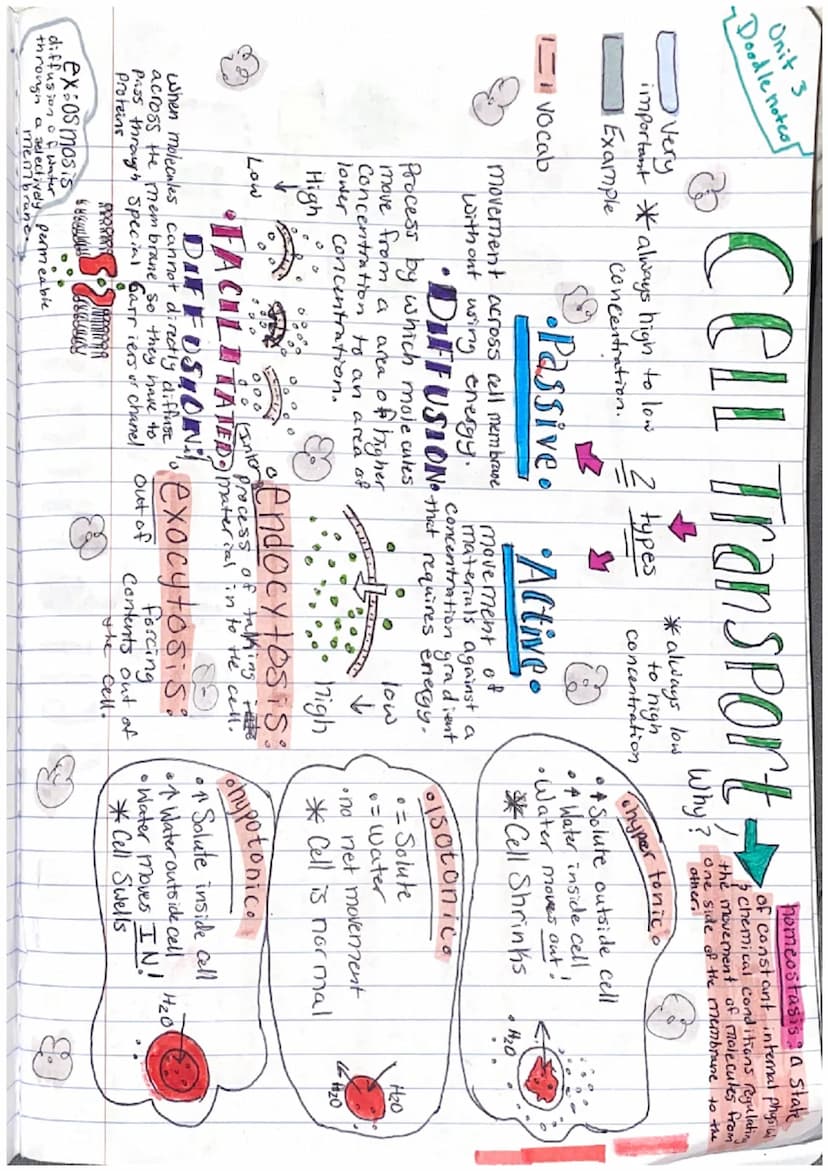 Unit 3
Doodle notes
Cell Transport
Very
important
Example
vocab
Why?
homeostasis: A state
of constant internal physical
& chemical conditions regulating
the movement of molecules from
one side of the membrane to the
other.
2 types
* always high to low
concentration.
* always low
to high
concentration
• Passive •
movement across cell membrane
without using energy.
• DIFFUSION •
Process by which molecules
move from a area of higher
concentration to an area of
lower concentration.
High
Low
• FACILITATED •
DIFFUSION:
When molecules cannot directly diffuse
across the membrane so they have to
pass through special carriers or chanel
proteins
ex: osmosis
diffusion of water
through a selectively permeable
membrane
• Active •
movement of
materials against a
concentration gradient
that requires energy.
low
high
• endocytosis:
(Into)
process of taking
material in to the cell.
• exocytosis:
out of
forcing
contents out of
the cell.
• hyper tonic •
• ↑ Solute outside cell
• ↑ Water inside cell
• Water moves out!
* Cell Shrinks
H2O
• Isotonic •
• = Solute
• = Water
• no net movement
* Cell is normal
H2O
H2O
• hypotonic •
• ↑ Solute inside cell
• ↑ Water outside cell
• Water moves IN!
* Cell Swells
H2O